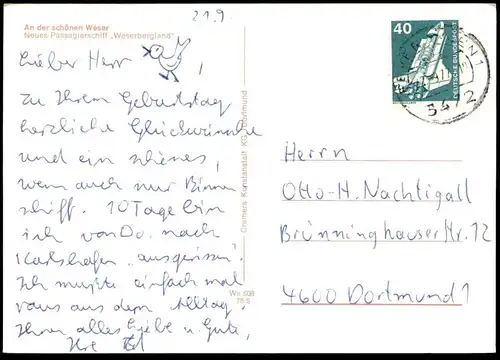 21.9
An der schönen Weser
Neues Passagierschiff „Weserbergland"
Lieber Herr !
zu Ihrem Geburtstag
herzliche Glückwünsche
und ein schönes,
wenn auch nur Binnen
schiff. 10 Tage bin
ich von Do. nach
Karlshafen „ausgerissen".
Ich mußte einfach mal
raus aus dem Alltag.
Ihnen alles Liebe u. Gute,
Ihre
Cramers Kunstanstalt KG, Dortmund
We 508
40
DEUTSCHE BUNDESPOST
3472
Herrn
Otto-H. Nachtigall
Brünninghauser Str. 12
4600 Dortmund 1